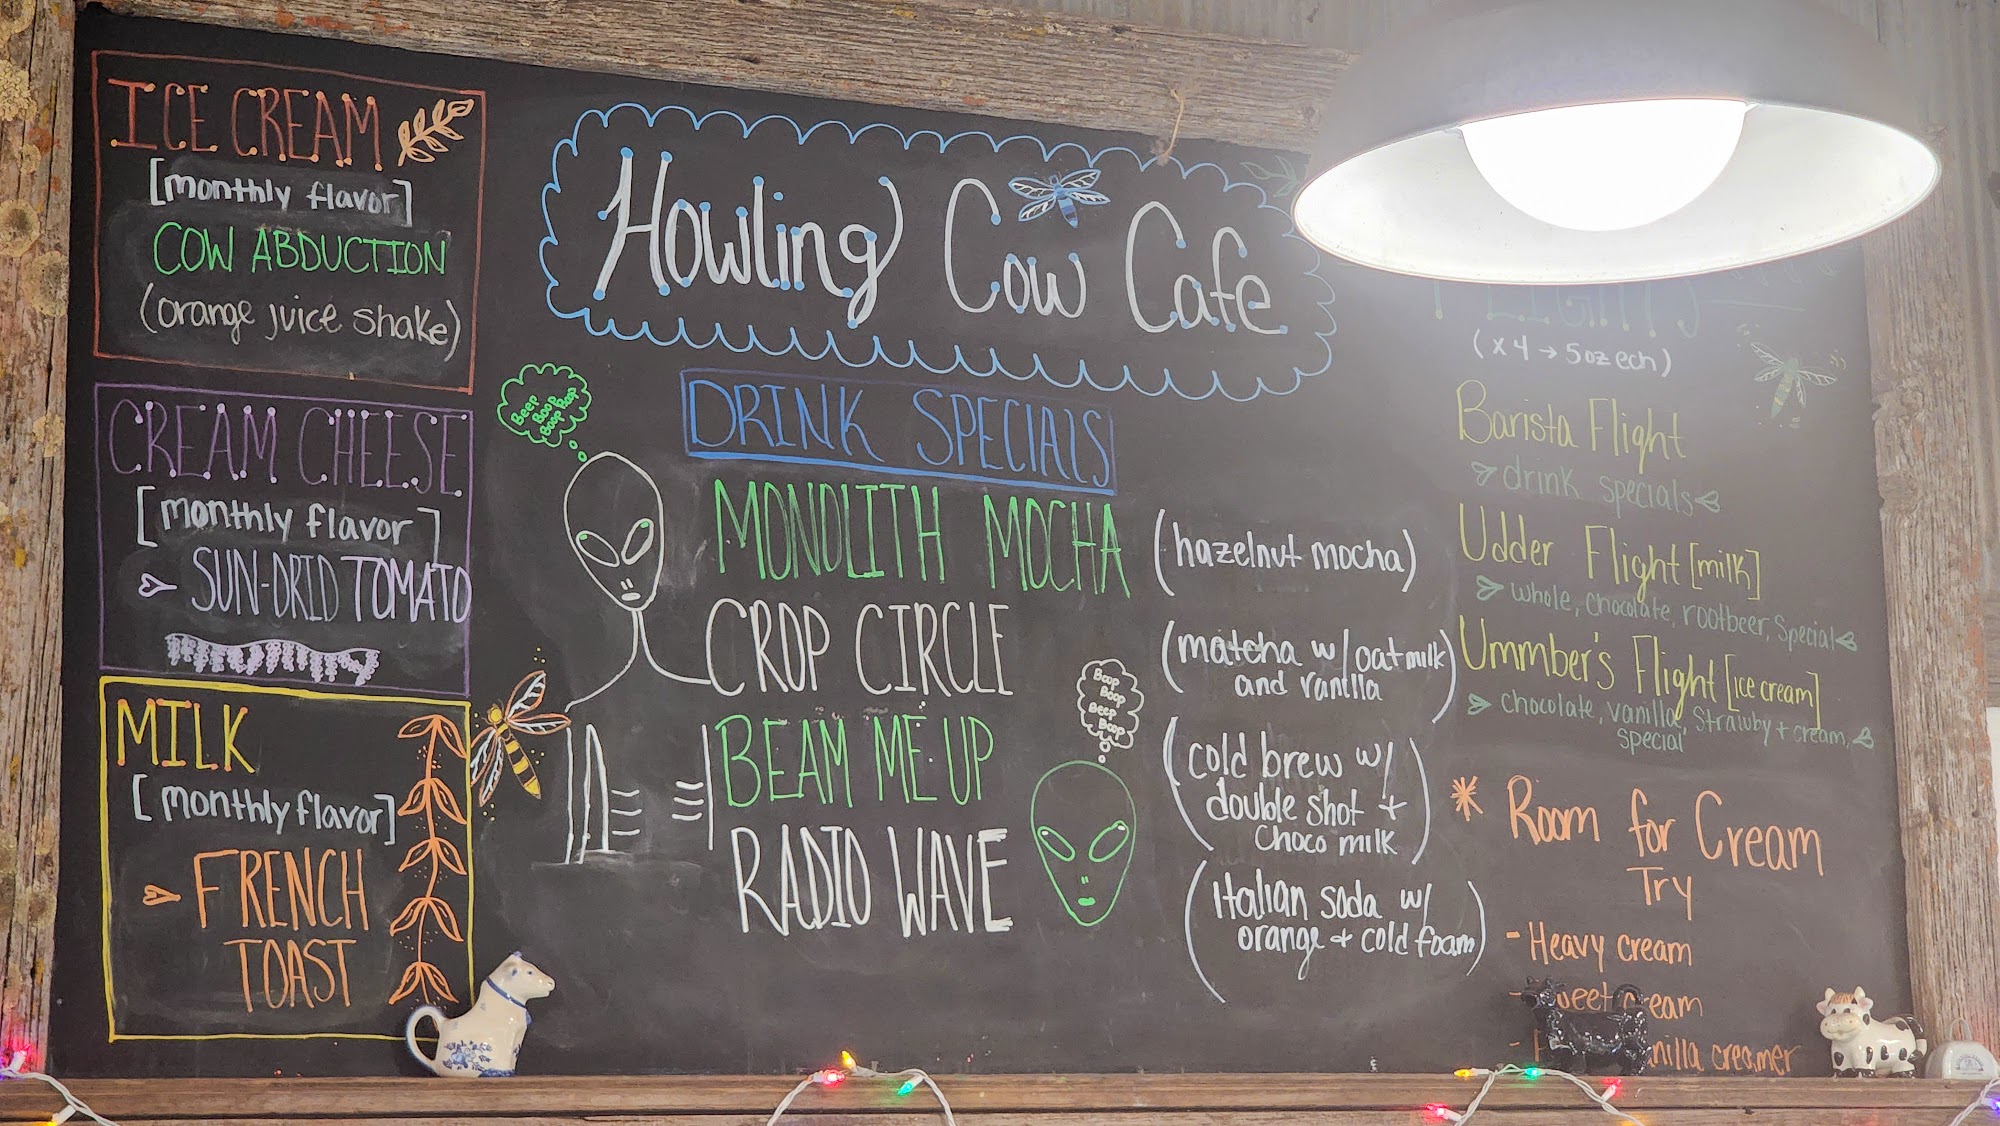 ICE CREAM
[monthly flavor]
COW ABDUCTION
(orange juice shake)
CREAM CHEESE
[monthly flavor]
SUN-DRID TOMATO
MILK
[monthly flavor]
FRENCH
TOAST
Howling Cow Cafe
Beep
Boop
Boop
Boop
DRINK SPECIALS
MONOLITH MOCHA (hazelnut mocha)
CROP CIRCLE (matcha w/ oat milk
and vanilla)
BEAM ME UP (cold brew w/
double shot +
choco milk)
RADIO WAVE (Italian soda w/
orange + cold foam)
Boop
Boop
Beep
Boop
FLIGHTS
(x4 → 5oz ech)
Barista Flight
drink specials
Udder Flight [milk]
whole, chocolate, rootbeer, special
Ummber's Flight [ice cream]
chocolate, vanilla, Strawby + cream,
special
* Room for Cream
Try
- Heavy cream
- Sweet cream
vanilla creamer